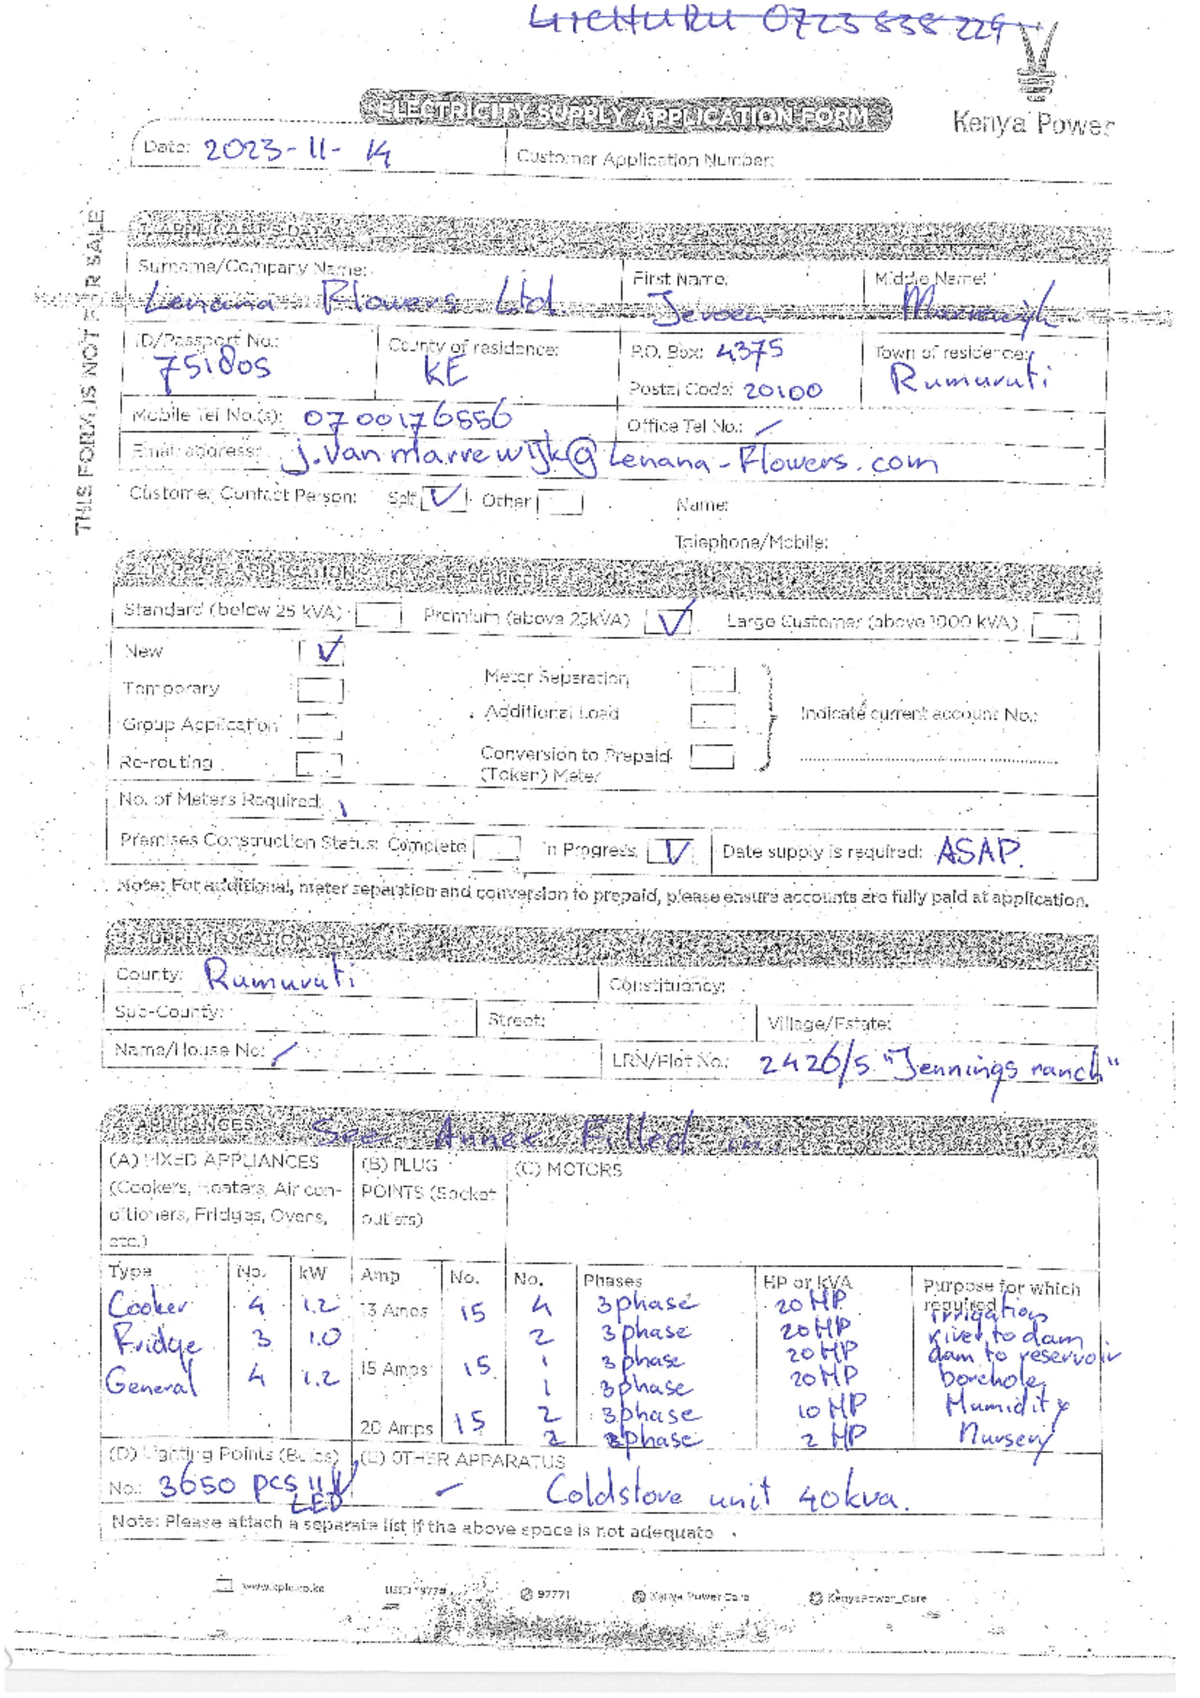 GICHURU 0723 838 229
ELECTRICITY SUPPLY APPLICATION FORM
Kenya Power
Date: 2023-11-14
Customer Application Number:
THIS FORM IS NOT FOR SALE
1. APPLICANT'S DATA
Surname/Company Name: First Name: Middle Name:
Lenana Flowers Ltd. Jeroen
ID/Passport No.: County of residence: P.O. Box: 4375 Town of residence:
751805 KE Postal Code: 20100 Rumuruti
Mobile Tel No.(s): 0700176556 Office Tel No.: /
Email address: j.vanmarrewijk@Lenana-Flowers.com
Customer Contact Person: Self V Other Name:
Telephone/Mobile:
2. TYPE OF APPLICATION
Standard (below 25 kVA) Premium (above 25kVA) V Large Customer (above 1000 kVA)
New V
Temporary Meter Separation
Group Application Additional Load Indicate current account No.:
Re-routing Conversion to Prepaid
(Token) Meter
No. of Meters Required: 1
Premises Construction Status: Complete In Progress V Date supply is required: ASAP.
Note: For additional, meter separation and conversion to prepaid, please ensure accounts are fully paid at application.
3. SUPPLY LOCATION DATA
County: Rumuruti Constituency:
Sub-County: Street: Village/Estate:
Name/House No: / LRN/Plot No.: 2426/5 "Jennings ranch"
4. APPLIANCES See Annex Filled in.
(A) FIXED APPLIANCES (B) PLUG (C) MOTORS
(Cookers, Heaters, Air con- POINTS (Socket
ditioners, Fridges, Ovens, outlets)
etc.)
Type No. kW Amp No. No. Phases HP or kVA Purpose for which
required
Cooker 4 1.2 13 Amps 15 4 3phase 20 HP irrigation
Fridge 3 1.0 2 3phase 20 HP river to dam
15 Amps 15 1 3phase 20 HP dam to reservoir
General 4 1.2 1 3phase 20 HP borehole
2 3phase 10 HP Humidity
20 Amps 15 2 3phase 2 HP Nursery
(D) Lighting Points (Bulbs) (E) OTHER APPARATUS
No.: 3650 pcs 11W - Coldstore unit 40kva.
LED
Note: Please attach a separate list if the above space is not adequate
www.kplc.co.ke 97771 Kenya Power Care KenyaPower_Care